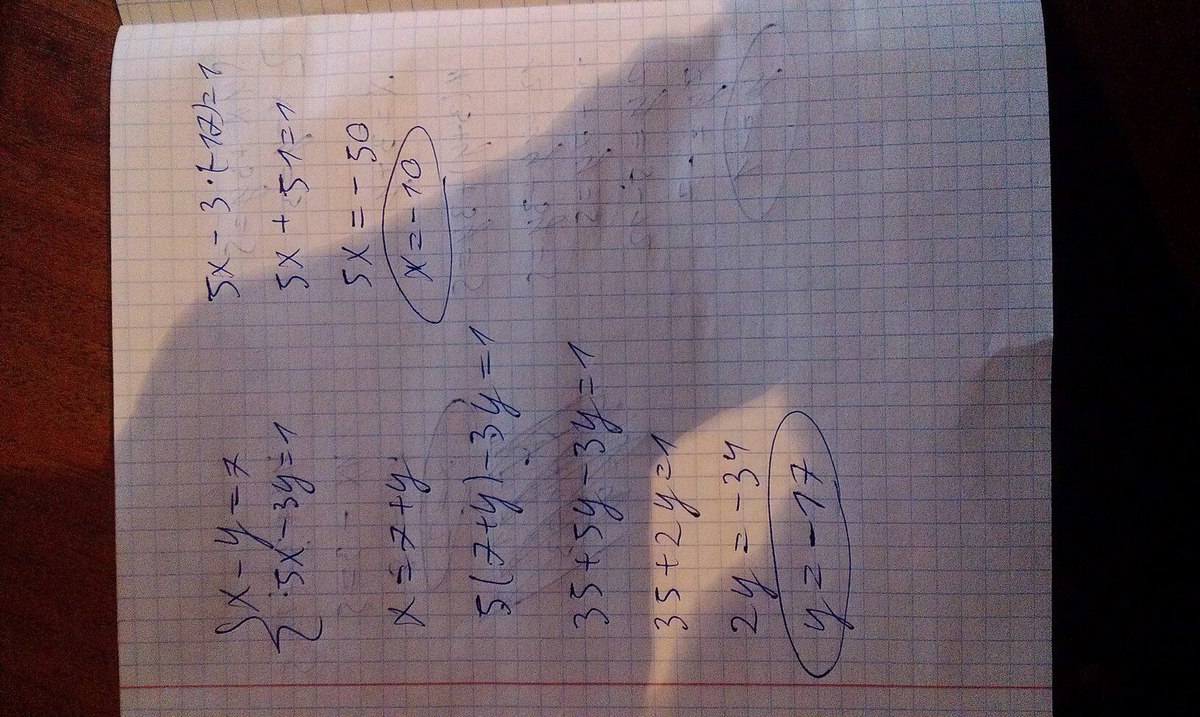 { x - y = 7
5x - 3y = 1
x = 7 + y
5(7+y) - 3y = 1
35 + 5y - 3y = 1
35 + 2y = 1
2y = -34
y = -17
5x - 3·(-17) = 1
5x + 51 = 1
5x = -50
x = -10